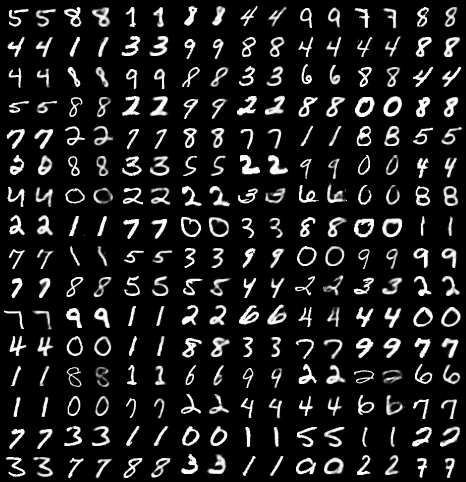 5 5 8 8 1 1 8 8 4 4 9 9 7 7 8 8
4 4 1 1 3 3 9 9 8 8 4 4 4 4 8 8
4 4 8 8 9 9 8 8 3 3 6 6 8 8 4 4
5 5 8 8 2 2 9 9 2 2 8 8 0 0 8 8
7 7 2 2 7 7 8 8 7 7 1 1 8 8 5 5
2 0 8 8 3 3 5 5 2 2 9 9 0 0 4 4
4 4 0 0 2 2 2 2 3 3 6 6 0 0 8 8
2 2 1 1 7 7 0 0 3 3 8 8 0 0 1 1
7 7 1 1 5 5 3 3 9 9 0 0 9 9 9 9
7 7 8 8 5 5 5 5 4 4 2 2 3 3 2 2
7 7 9 9 1 1 2 2 6 6 4 4 4 4 0 0
4 4 0 0 1 1 8 8 3 3 7 7 9 9 7 7
1 1 8 8 1 1 6 6 9 9 2 2 2 2 6 6
1 1 0 0 7 7 2 2 4 4 4 4 6 6 7 7
7 7 3 3 1 1 0 0 1 1 5 5 1 1 2 2
3 3 7 7 8 8 3 3 1 1 0 0 2 2 7 7